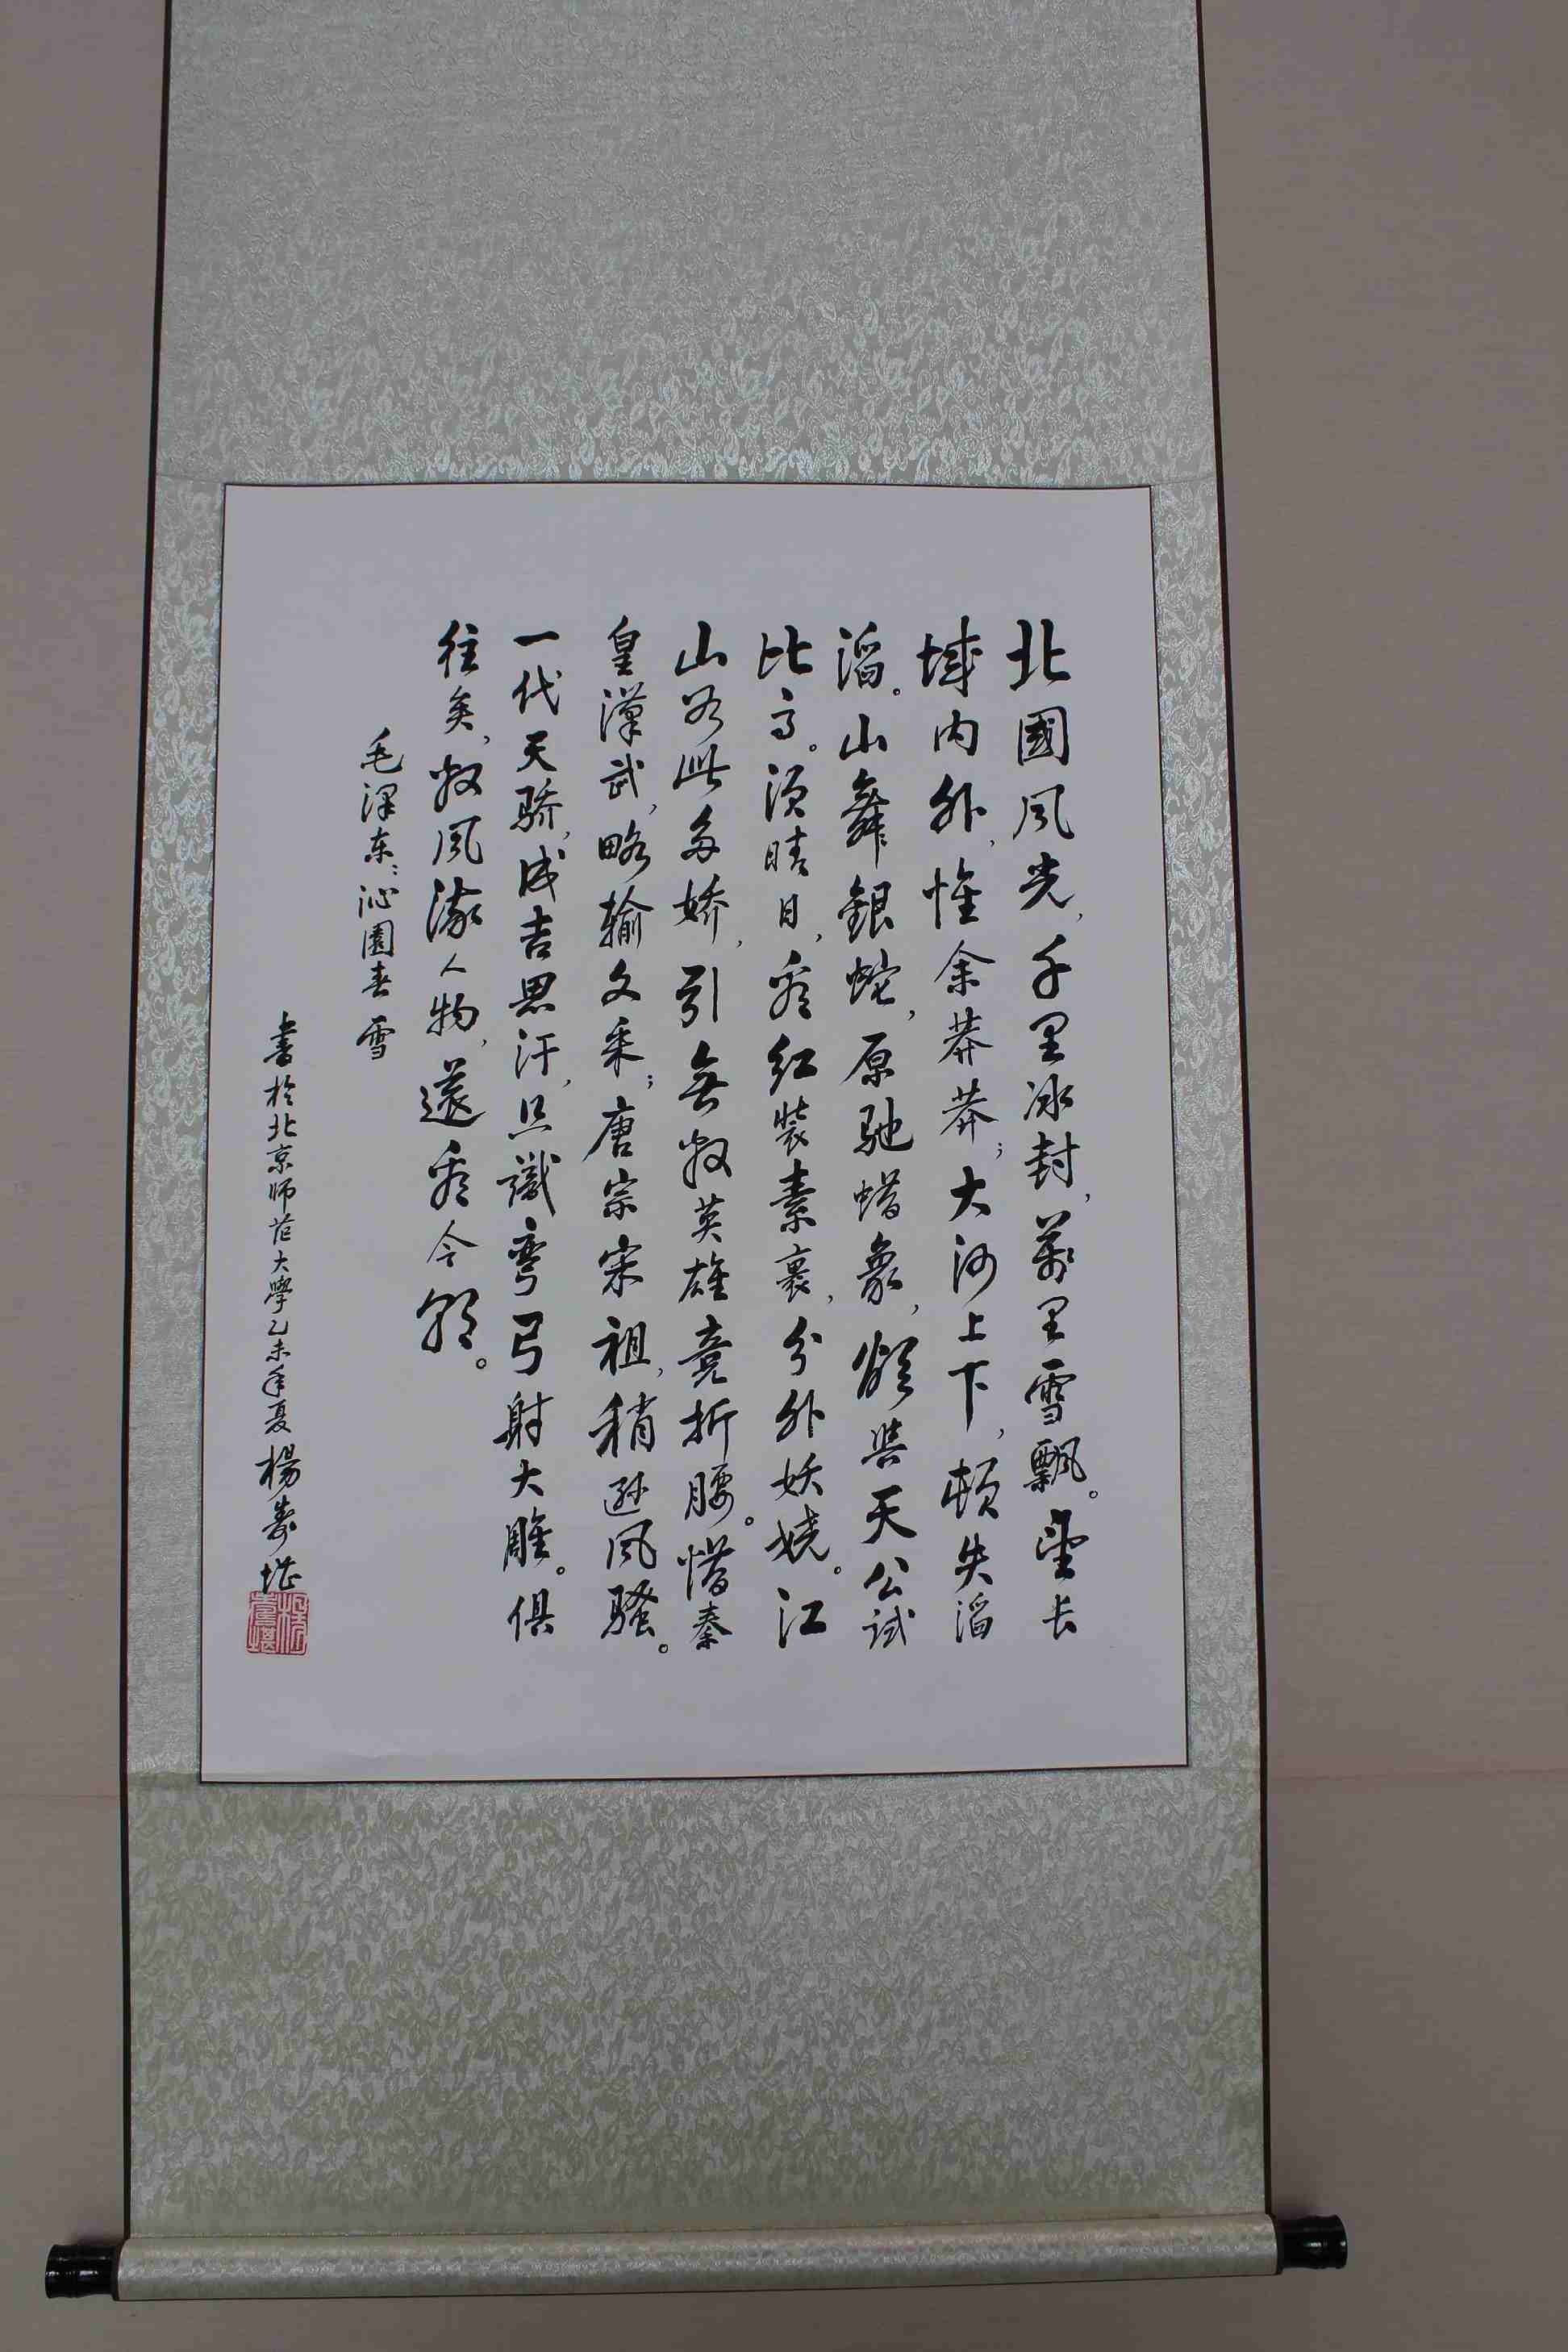 北國风光,千里冰封,萬里雪飘。望长
城内外,惟余莽莽;大河上下,顿失滔
滔。山舞銀蛇,原驰蜡象,欲與天公試
比高。须晴日,看红装素裹,分外妖娆。江
山如此多娇,引無数英雄竞折腰。惜秦
皇漢武,略输文采;唐宗宋祖,稍逊风骚。
一代天骄,成吉思汗,只識弯弓射大雕。俱
往矣,数风流人物,還看今朝。
毛泽东:沁園春 雪
書於北京师范大學乙未年夏楊壽堪
楊壽堪